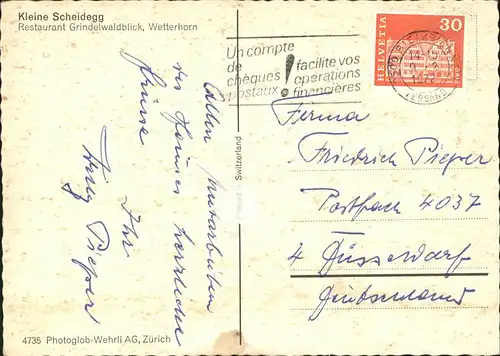 Kleine Scheidegg
Restaurant Grindelwaldblick, Wetterhorn
Un compte
de
chèques
postaux
!
facilite vos
opérations
financières
HELVETIA
30
VERSAND
Allen Mitarbeitern
des Hauses herzliche
Grüsse
Ihr
Pieper
Printed in Switzerland
Firma
Friedrich Pieper
Postfach 4037
4 Düsseldorf
Deutschland
4735 Photoglob-Wehrli AG, Zürich